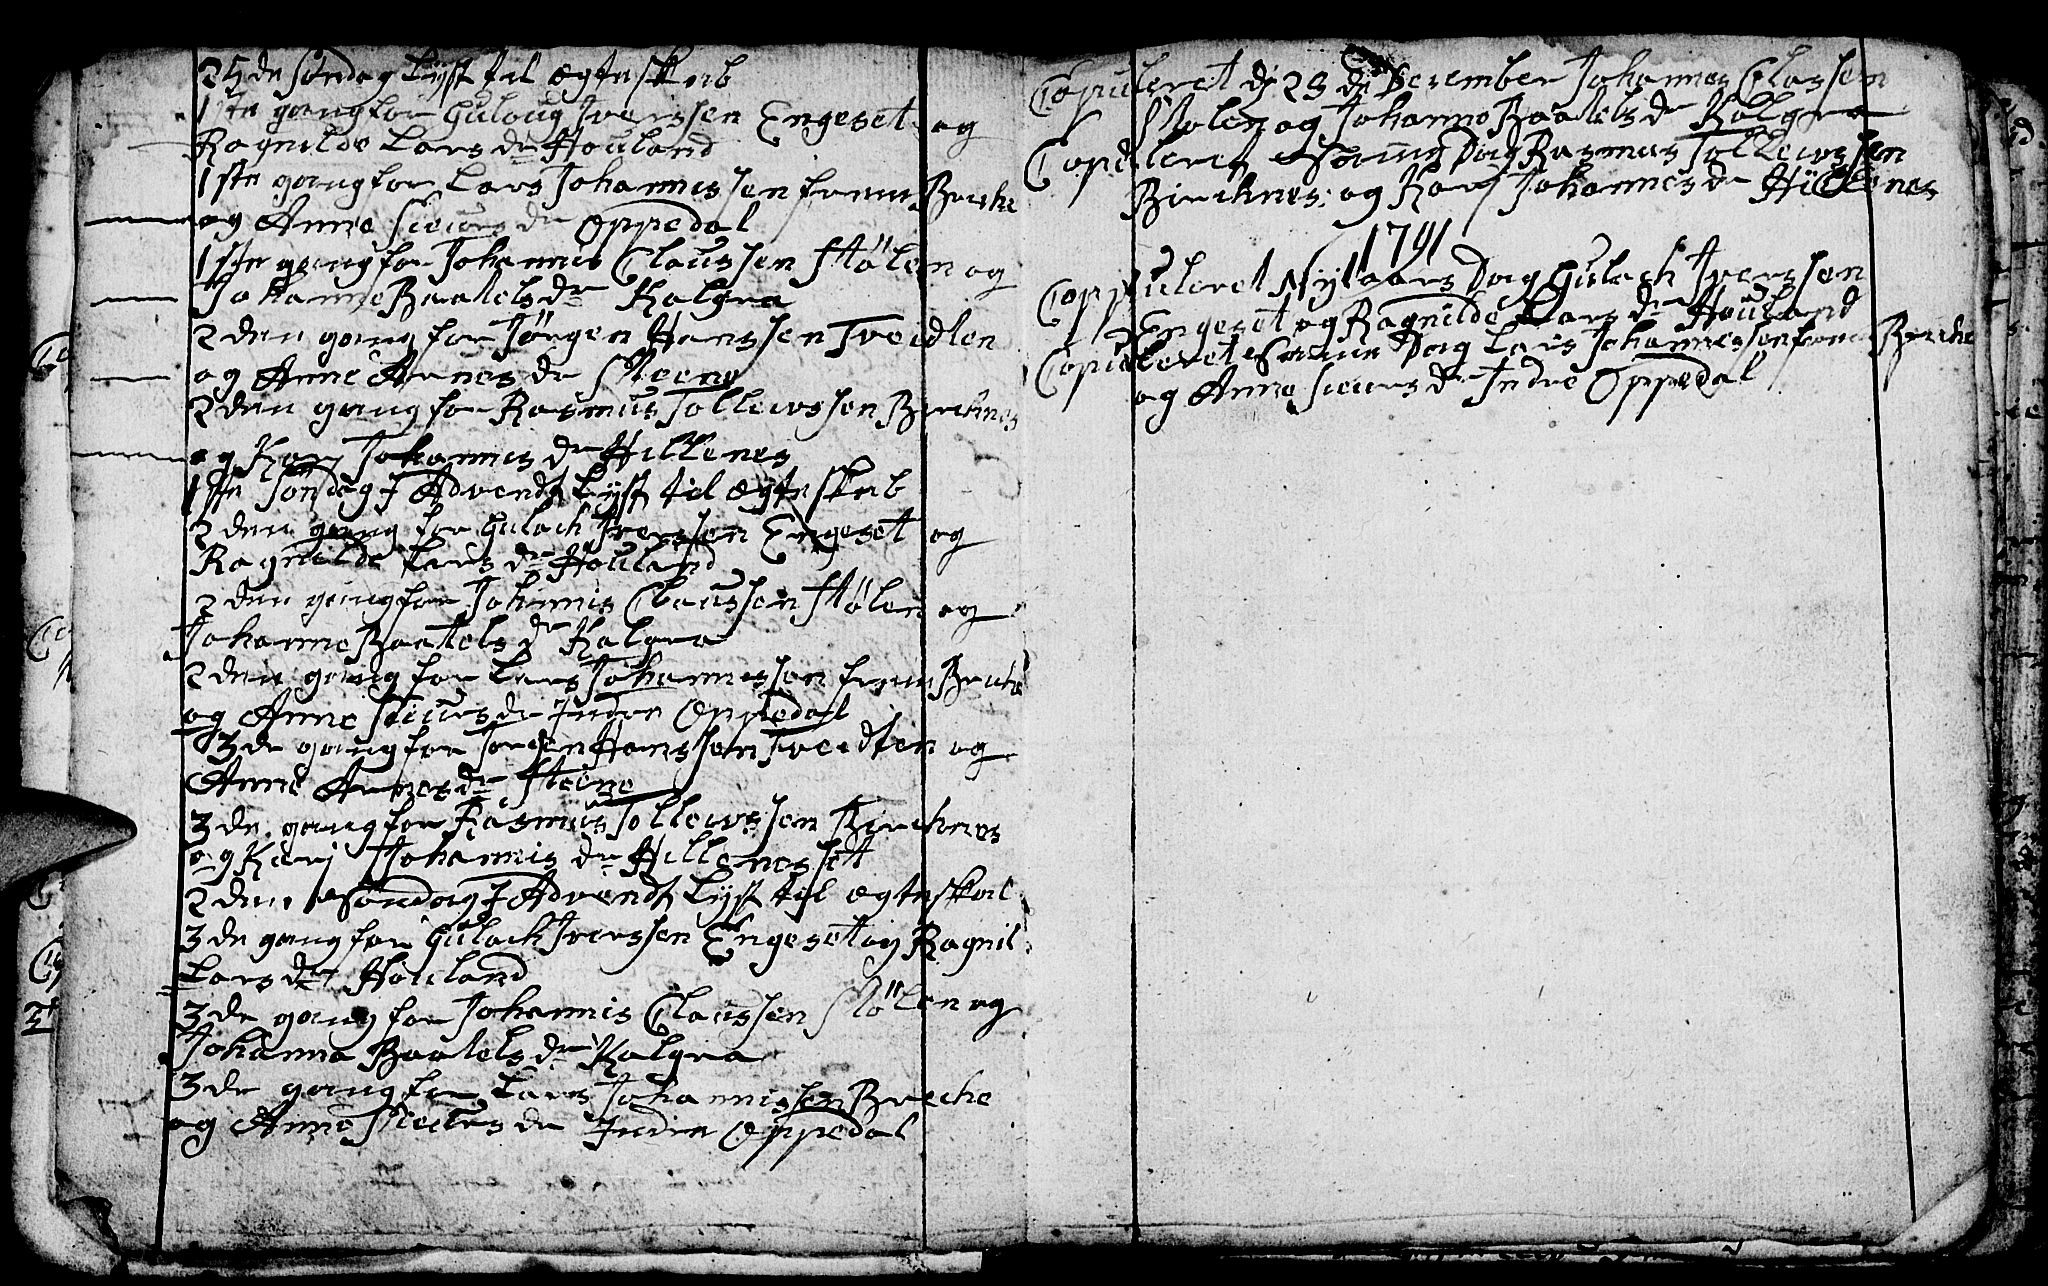 25de Søndag Lyst til Ægteskab
1ste gang for Guloug Iverssen Engeset og
Ragnilde Lars dr Houland
1ste gang for Lars Johannessen frem Breche
og Anne Sieurs dr Oppedal
1ste gang for Johannis Claussen Stölen og
Johanne Baatels dr Kalgra
2den gang for Jörgen Hanssen Tveidten
og Anne Arnes dr Steene
2den gang for Rasmus Tollewssen Birchnes
og Kari Johannis dr Hillenes
1ste Søndag I Advendt Lyst til Ægteskab
2den gang for Gulach Iverssen Engeset og
Ragnilde Lars dr Houland
2den gang for Johannis Claussen Stölen og
Johanne Baatels dr Kalgra
2den gang for Lars Johannessen frem Breche
og Anne Sieurs dr Indre Oppedal
3de gang for Jörgen Hanssen Tveidten og
Anne Arnes dr Steene
3de gang for Rasmus Tollewssen Birchnes
og Kari Johannis dr Hillenesset
2den Søndag I Advendt Lyst til Ægteskab
3de gang for Gulach Iverssen Engeset og Ragnil
Lars dr Houland
3de gang for Johannis Claussen Stölen og
Johanna Baatels dr Kalgra
3de gang for Lars Johannissen Breche
og Anne Sieurs dr Indre Oppedal
Copuleret dj 23de December Johannes Classen
Stolen og Johanne Baatels dr Kalgra
Copuleret Samme Dag Rasmus Tollewssen
Birchnes og Kari Johannes dr Hillenes
1791
Coppuleret Nytaars Dag Gulach Iverssen
Engeset og Ragnilde Lars dr Houland
Copuleret Samme Dag Lars Johannessen frem Breche
og Anne Sieurs dr Indre Oppedal